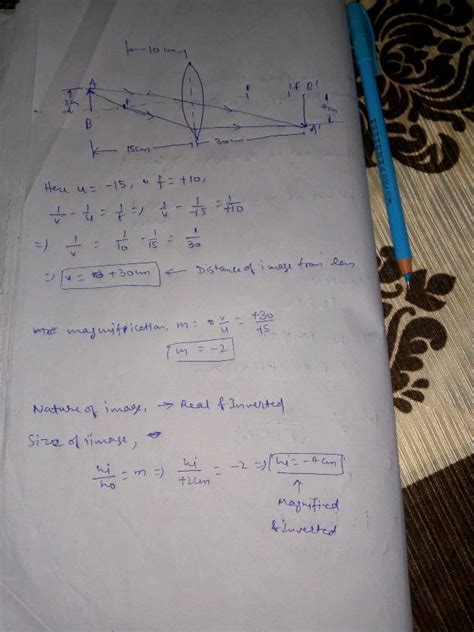 10cm
A
2cm
B
F
F
2F B'
4cm
A'
15cm
30cm
Here u = -15, f = +10,
1/v - 1/u = 1/f => 1/v - 1/-15 = 1/+10
=> 1/v = 1/10 - 1/15 = 1/30
=> v = +30cm ← Distance of image from lens
magnification, m = v/u = +30/-15
m = -2
Nature of image, → Real & Inverted
Size of image,
hi/ho = m => hi/+2cm = -2 => hi = -4cm
↑
Magnified
& inverted